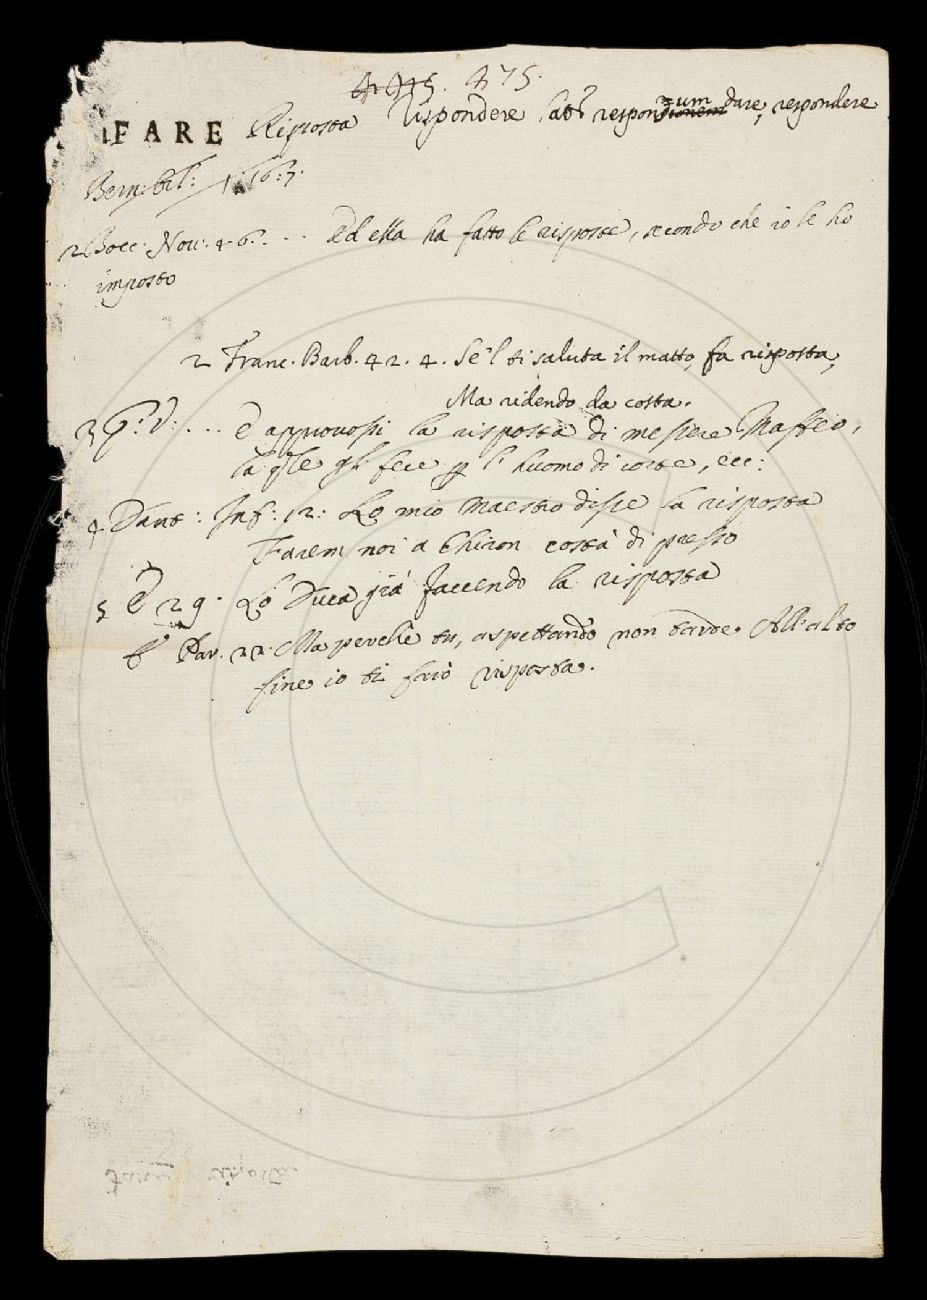 475.
FARE Risposta Rispondere lat: responsum dare, respondere
Bern: Orl: 1. 16. 7.
2 Bocc. Nov. 46. ... Ed ella ha fatto le risposte, secondo che io le ho
imposto
2 Franc. Barb. 42. 4. Se'l ti saluta il matto, fa risposta,
Ma ridendo da costa.
3 G. V. ... E approvossi la risposta di messere Maffeo,
la qle gli fece p l'huomo di corte, ecc:
4 Dant: Inf: 12: Lo mio Maestro disse la risposta
Farem noi a Chiron costà di presso
5 E 29. Lo Duca già faccendo la risposta
6 Par. 22. Ma perchè tu, aspettando non tarde. All'alto
fine io ti farò risposta.